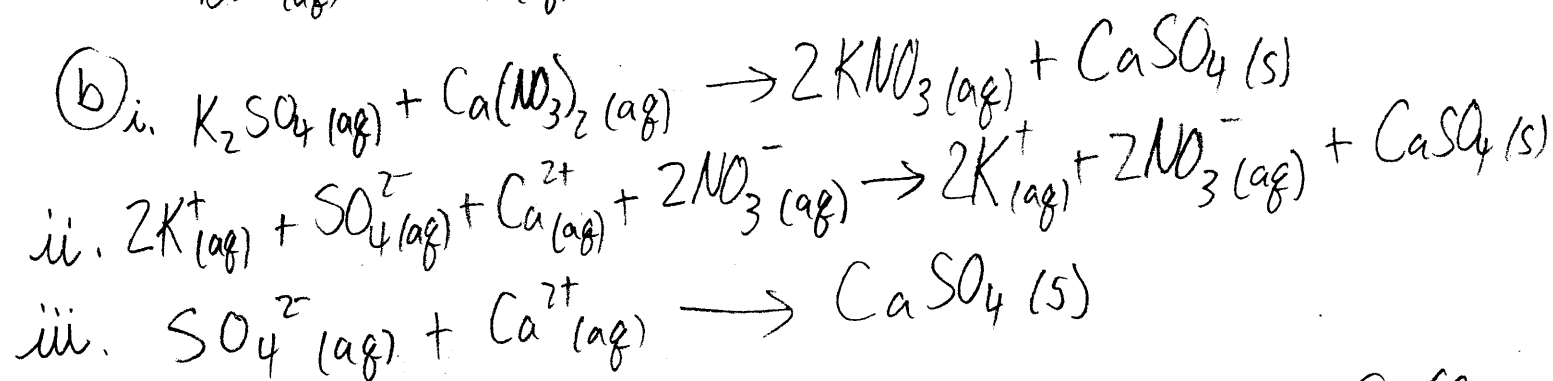 (aq)
b i. K₂SO₄ (aq) + Ca(NO₃)₂ (aq) → 2KNO₃ (aq) + CaSO₄ (s)
ii. 2K⁺(aq) + SO₄²⁻(aq) + Ca²⁺(aq) + 2NO₃⁻(aq) → 2K⁺(aq) + 2NO₃⁻(aq) + CaSO₄ (s)
iii. SO₄²⁻(aq) + Ca²⁺(aq) → CaSO₄ (s)